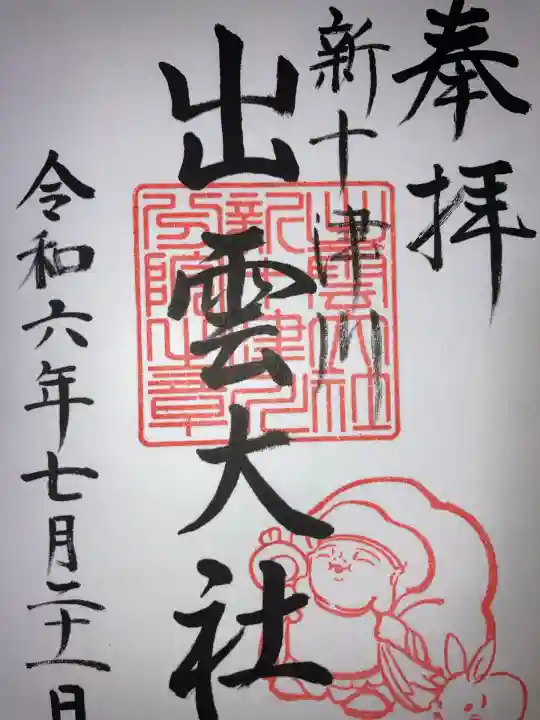 奉拝
新十津川
出雲大社
令和六年七月二十一日
出雲大社
新十津川
分院之章